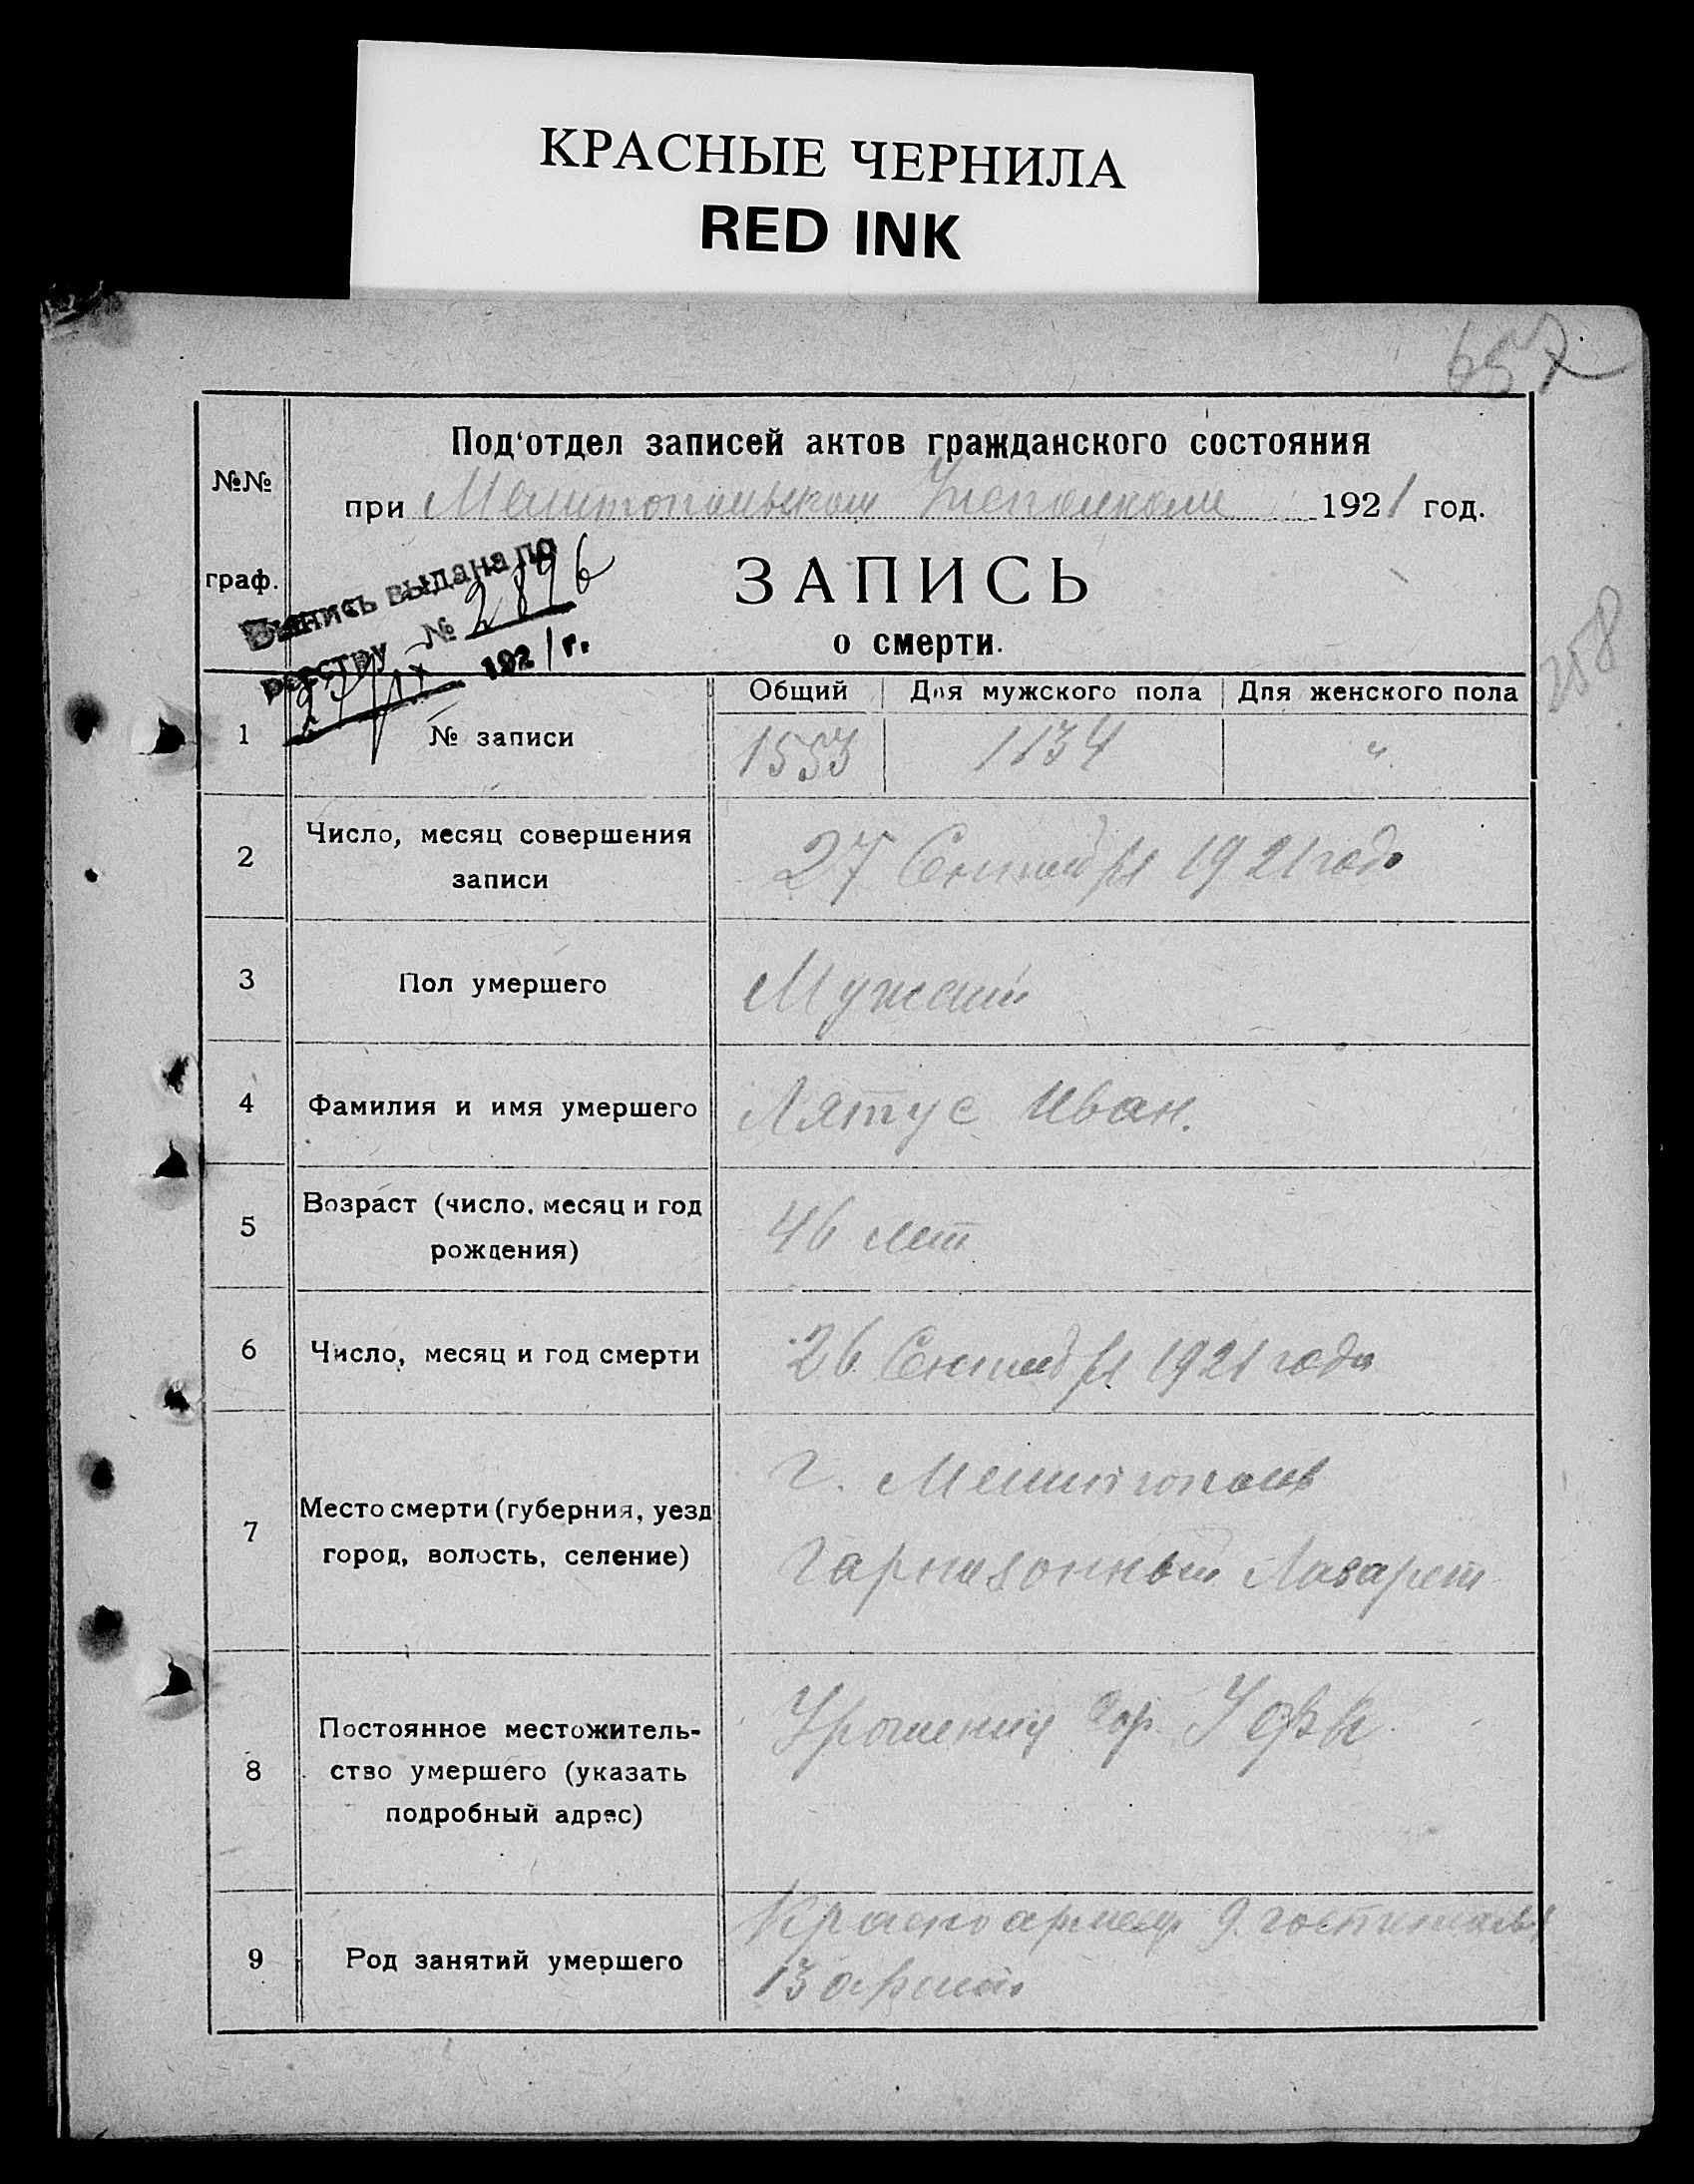 КРАСНЫЕ ЧЕРНИЛА
RED INK
657
№№ граф.
Под'отдел записей актов гражданского состояния
при Мелитопольском 1921 год.
Выпись выдана по
реестру № 2896
1921 г.
ЗАПИСЬ
о смерти.
258
Общий Для мужского пола Для женского пола
1 № записи 1553 1134 "
2 Число, месяц совершения
записи
27 Сентября 1921 года
3 Пол умершего Мужской
4 Фамилия и имя умершего Лятус Иван.
5 Возраст (число, месяц и год
рождения)
46 лет
6 Число, месяц и год смерти 26 Сентября 1921 года
7 Место смерти (губерния, уезд
город, волость, селение)
г. Мелитополь
Гарнизонный Лазарет
8 Постоянное местожитель-
ство умершего (указать
подробный адрес)
гор.
9 Род занятий умершего
Красноармеец 9. госпиталя
13 армии